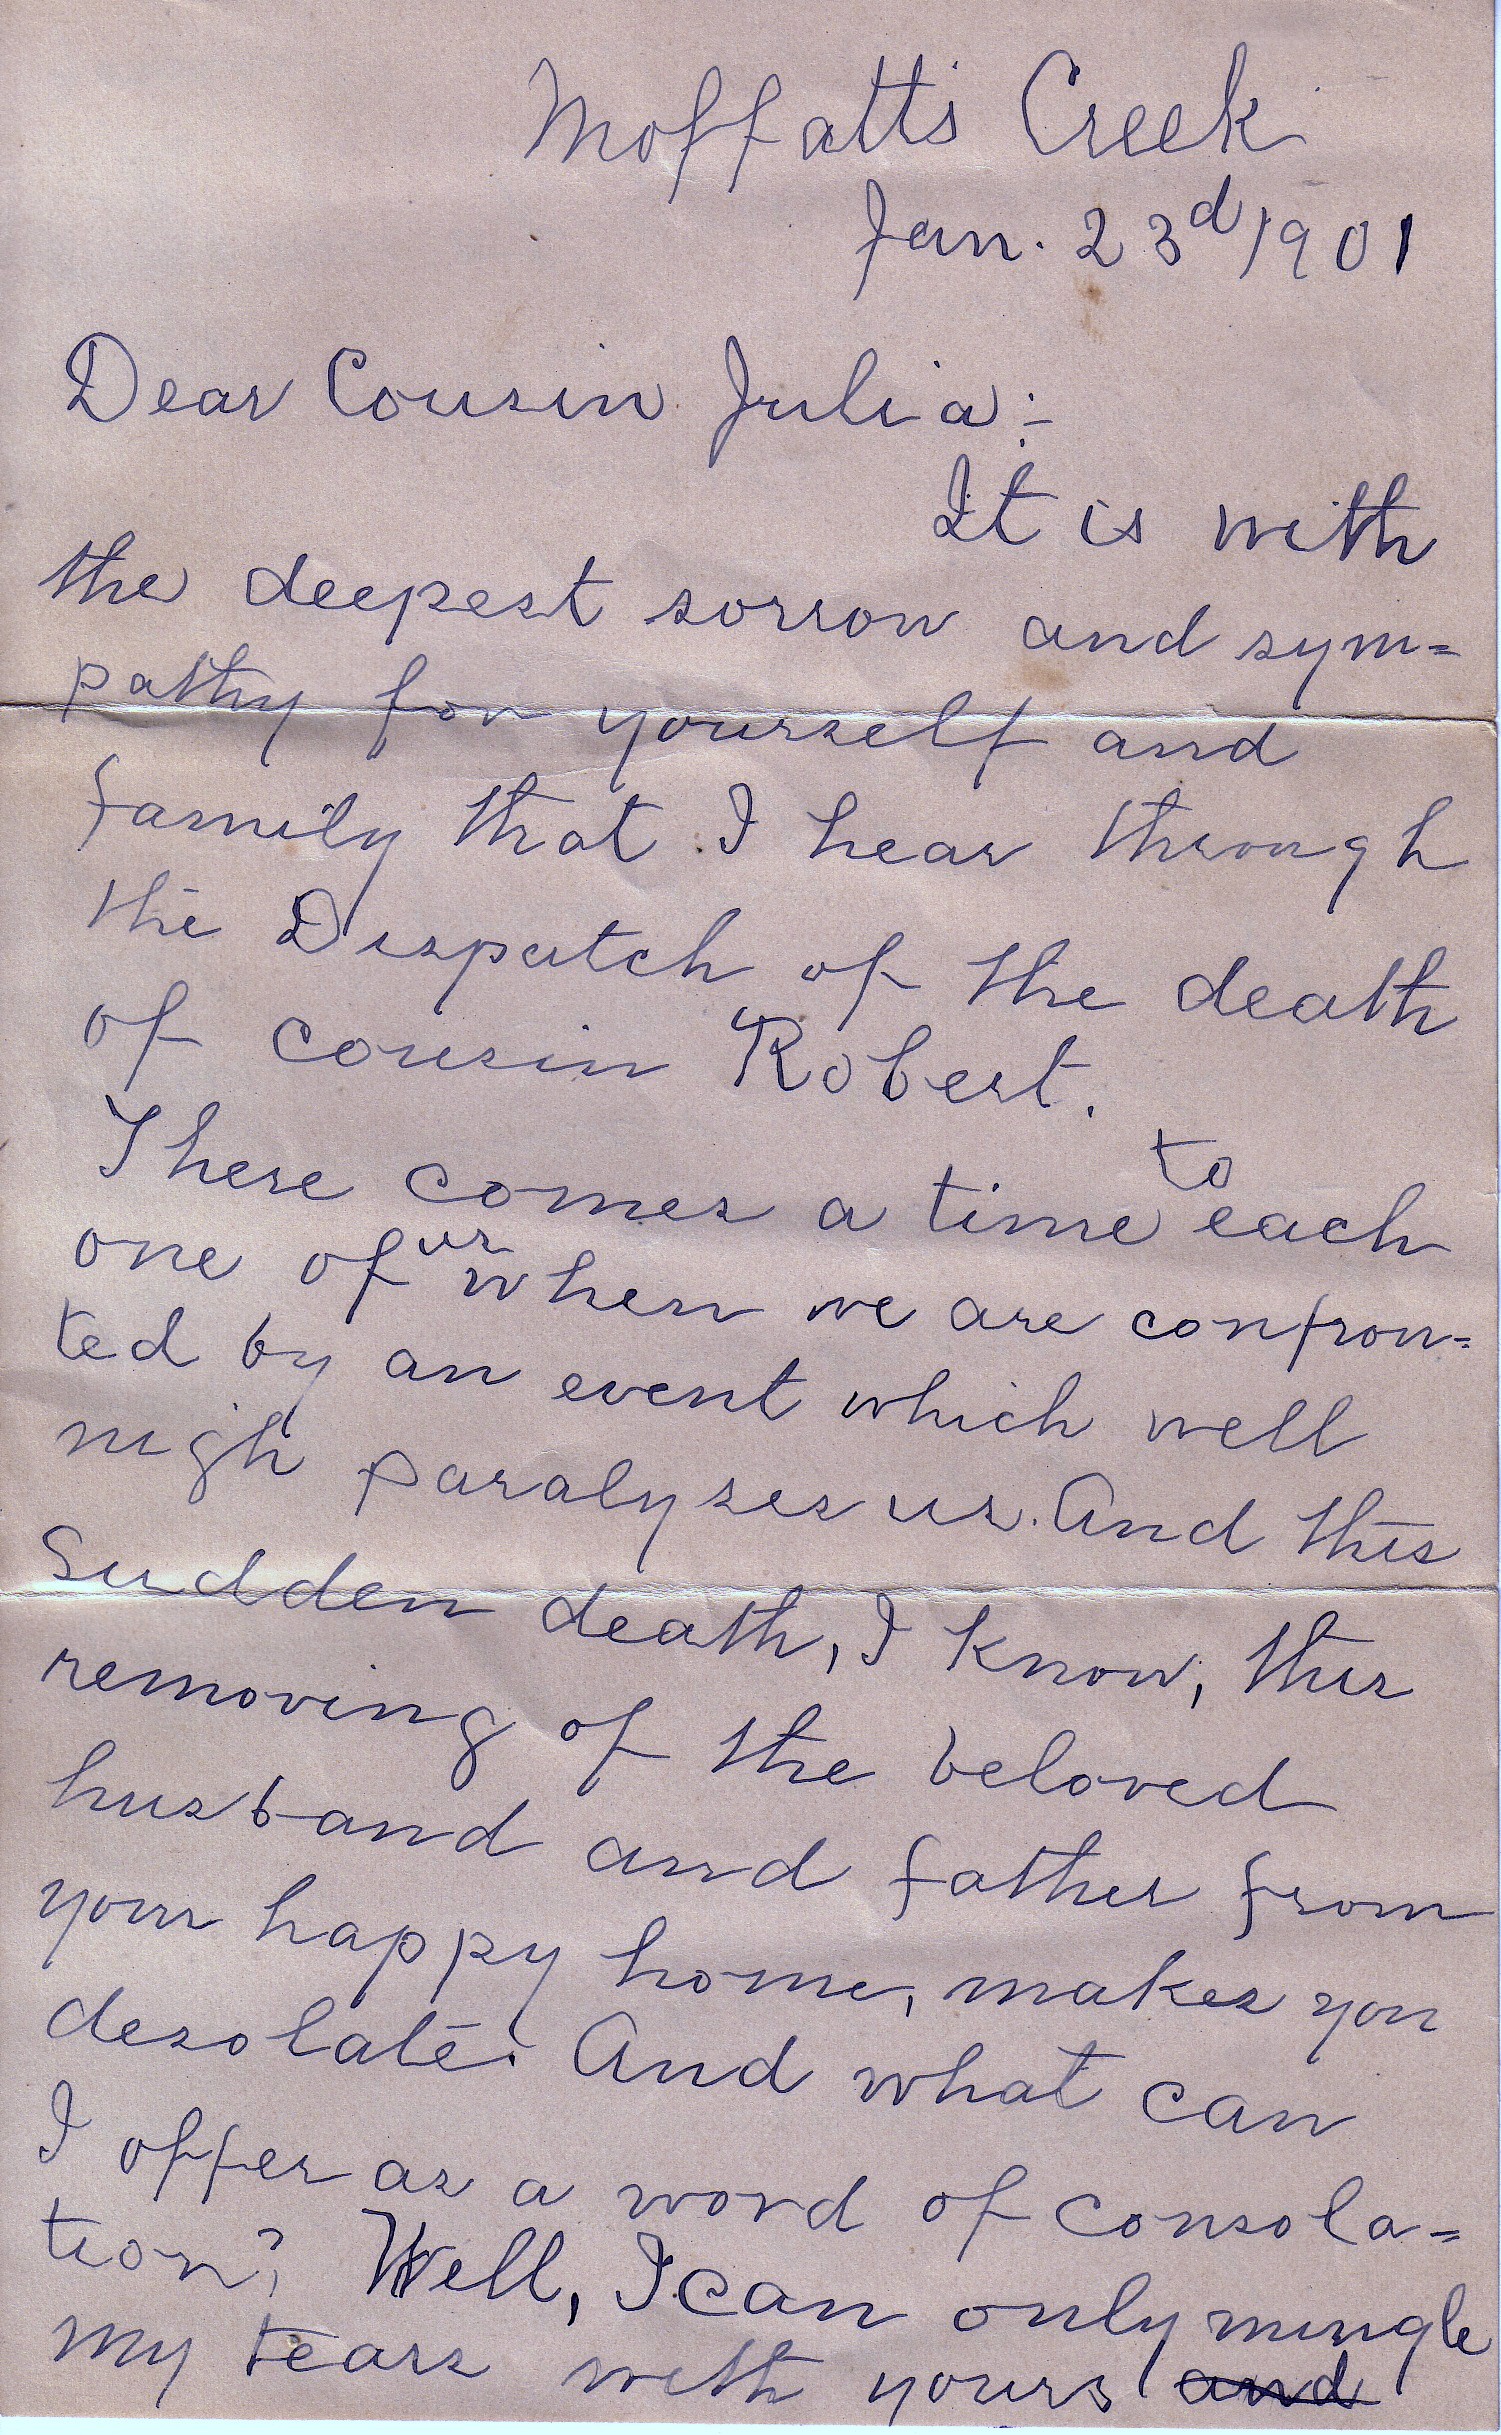 Moffatts Creek
Jan. 23d 1901
Dear Cousin Julia:-
It is with
the deepest sorrow and sym=
pathy for yourself and
family that I hear through
the Dispatch of the death
of cousin Robert.
There comes a time to each
one of us when we are confron=
ted by an event which well
nigh paralyzes us. And this
sudden death, I know, this
removing of the beloved
husband and father from
your happy home, makes you
desolate. And what can
I offer as a word of consola=
tion? Well, I can only mingle
my tears with yours and